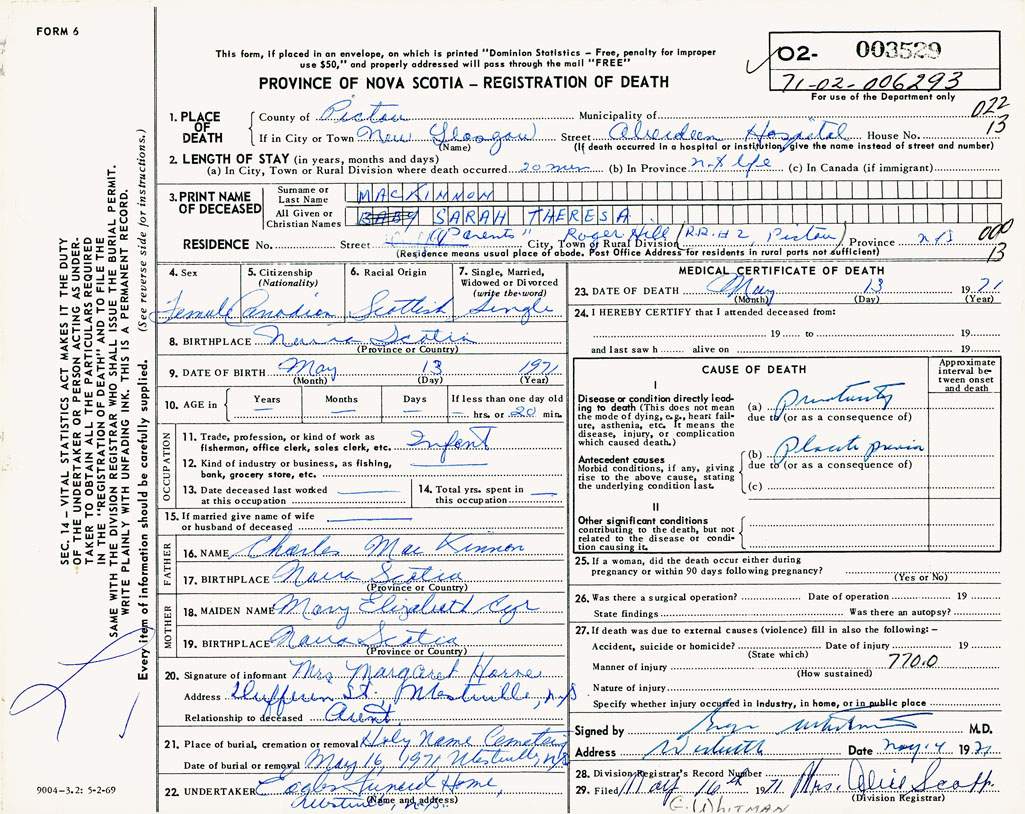 FORM 6
This form, if placed in an envelope, on which is printed "Dominion Statistics – Free, penalty for improper
use $50," and properly addressed will pass through the mail "FREE"
PROVINCE OF NOVA SCOTIA – REGISTRATION OF DEATH
02- 003529
71-02-006293
For use of the Department only
022
13
1. PLACE OF DEATH
County of Pictou Municipality of
If in City or Town New Glasgow Street Aberdeen Hospital House No.
(Name) (If death occurred in a hospital or institution, give the name instead of street and number)
2. LENGTH OF STAY (in years, months and days)
(a) In City, Town or Rural Division where death occurred 20 min (b) In Province life (c) In Canada (if immigrant)
3. PRINT NAME OF DECEASED
Surname or Last Name MACKINNON
All Given or Christian Names BABY SARAH THERESA
RESIDENCE No. Street "Parents" City, Town or Rural Division Roger Hill / R.R.#2, Pictou Province N/S
(Residence means usual place of abode. Post Office Address for residents in rural parts not sufficient)
000
13
4. Sex Female
5. Citizenship (Nationality) Canadian
6. Racial Origin Scottish
7. Single, Married, Widowed or Divorced (write the word) Single
8. BIRTHPLACE Nova Scotia
(Province or Country)
9. DATE OF BIRTH May 13 1971
(Month) (Day) (Year)
10. AGE in Years Months Days If less than one day old
hrs. or 20 min.
OCCUPATION
11. Trade, profession, or kind of work as fisherman, office clerk, sales clerk, etc. Infant
12. Kind of industry or business, as fishing, bank, grocery store, etc.
13. Date deceased last worked at this occupation
14. Total yrs. spent in this occupation
15. If married give name of wife or husband of deceased
FATHER
16. NAME Charles Mac Kinnon
17. BIRTHPLACE Nova Scotia
(Province or Country)
MOTHER
18. MAIDEN NAME Mary Elizabeth Cyr
19. BIRTHPLACE Nova Scotia
(Province or Country)
20. Signature of informant Mrs Margaret Horne
Address Dufferin St. Westville, N/S
Relationship to deceased Aunt
21. Place of burial, cremation or removal Holy Name Cemetery
Date of burial or removal May 16, 1971 Westville, N/S
22. UNDERTAKER Eagles Funeral Home,
Westville, N.S.
(Name and address)
MEDICAL CERTIFICATE OF DEATH
23. DATE OF DEATH May 13 1971
(Month) (Day) (Year)
24. I HEREBY CERTIFY that I attended deceased from:
19 to 19
and last saw h alive on 19
CAUSE OF DEATH
Approximate interval between onset and death
I
Disease or condition directly leading to death (This does not mean the mode of dying, e.g., heart failure, asthenia, etc. It means the disease, injury, or complication which caused death.)
(a) Prematurity
due to (or as a consequence of)
Antecedent causes
Morbid conditions, if any, giving rise to the above cause, stating the underlying condition last.
(b) Placenta previa
due to (or as a consequence of)
(c)
II
Other significant conditions
contributing to the death, but not related to the disease or condition causing it.
25. If a woman, did the death occur either during pregnancy or within 90 days following pregnancy?
(Yes or No)
26. Was there a surgical operation? Date of operation 19
State findings Was there an autopsy?
27. If death was due to external causes (violence) fill in also the following: –
Accident, suicide or homicide? Date of injury 19
(State which)
770.0
Manner of injury
(How sustained)
Nature of injury
Specify whether injury occurred in Industry, in home, or in public place
Signed by M.D.
Address Westville Date May 14 1971
28. Division Registrar's Record Number
29. Filed May 16th 1971 Mrs. Alice Scott
(Division Registrar)
G. WHITMAN
SEC. 14 – VITAL STATISTICS ACT MAKES IT THE DUTY
OF THE UNDERTAKER OR PERSON ACTING AS UNDER-
TAKER TO OBTAIN ALL THE PARTICULARS REQUIRED
IN THE "REGISTRATION OF DEATH" AND TO FILE THE
SAME WITH THE DIVISION REGISTRAR WHO SHALL ISSUE THE BURIAL PERMIT.
WRITE PLAINLY WITH UNFADING INK. THIS IS A PERMANENT RECORD.
Every item of information should be carefully supplied. (See reverse side for instructions.)
9004-3.2: 5-2-69